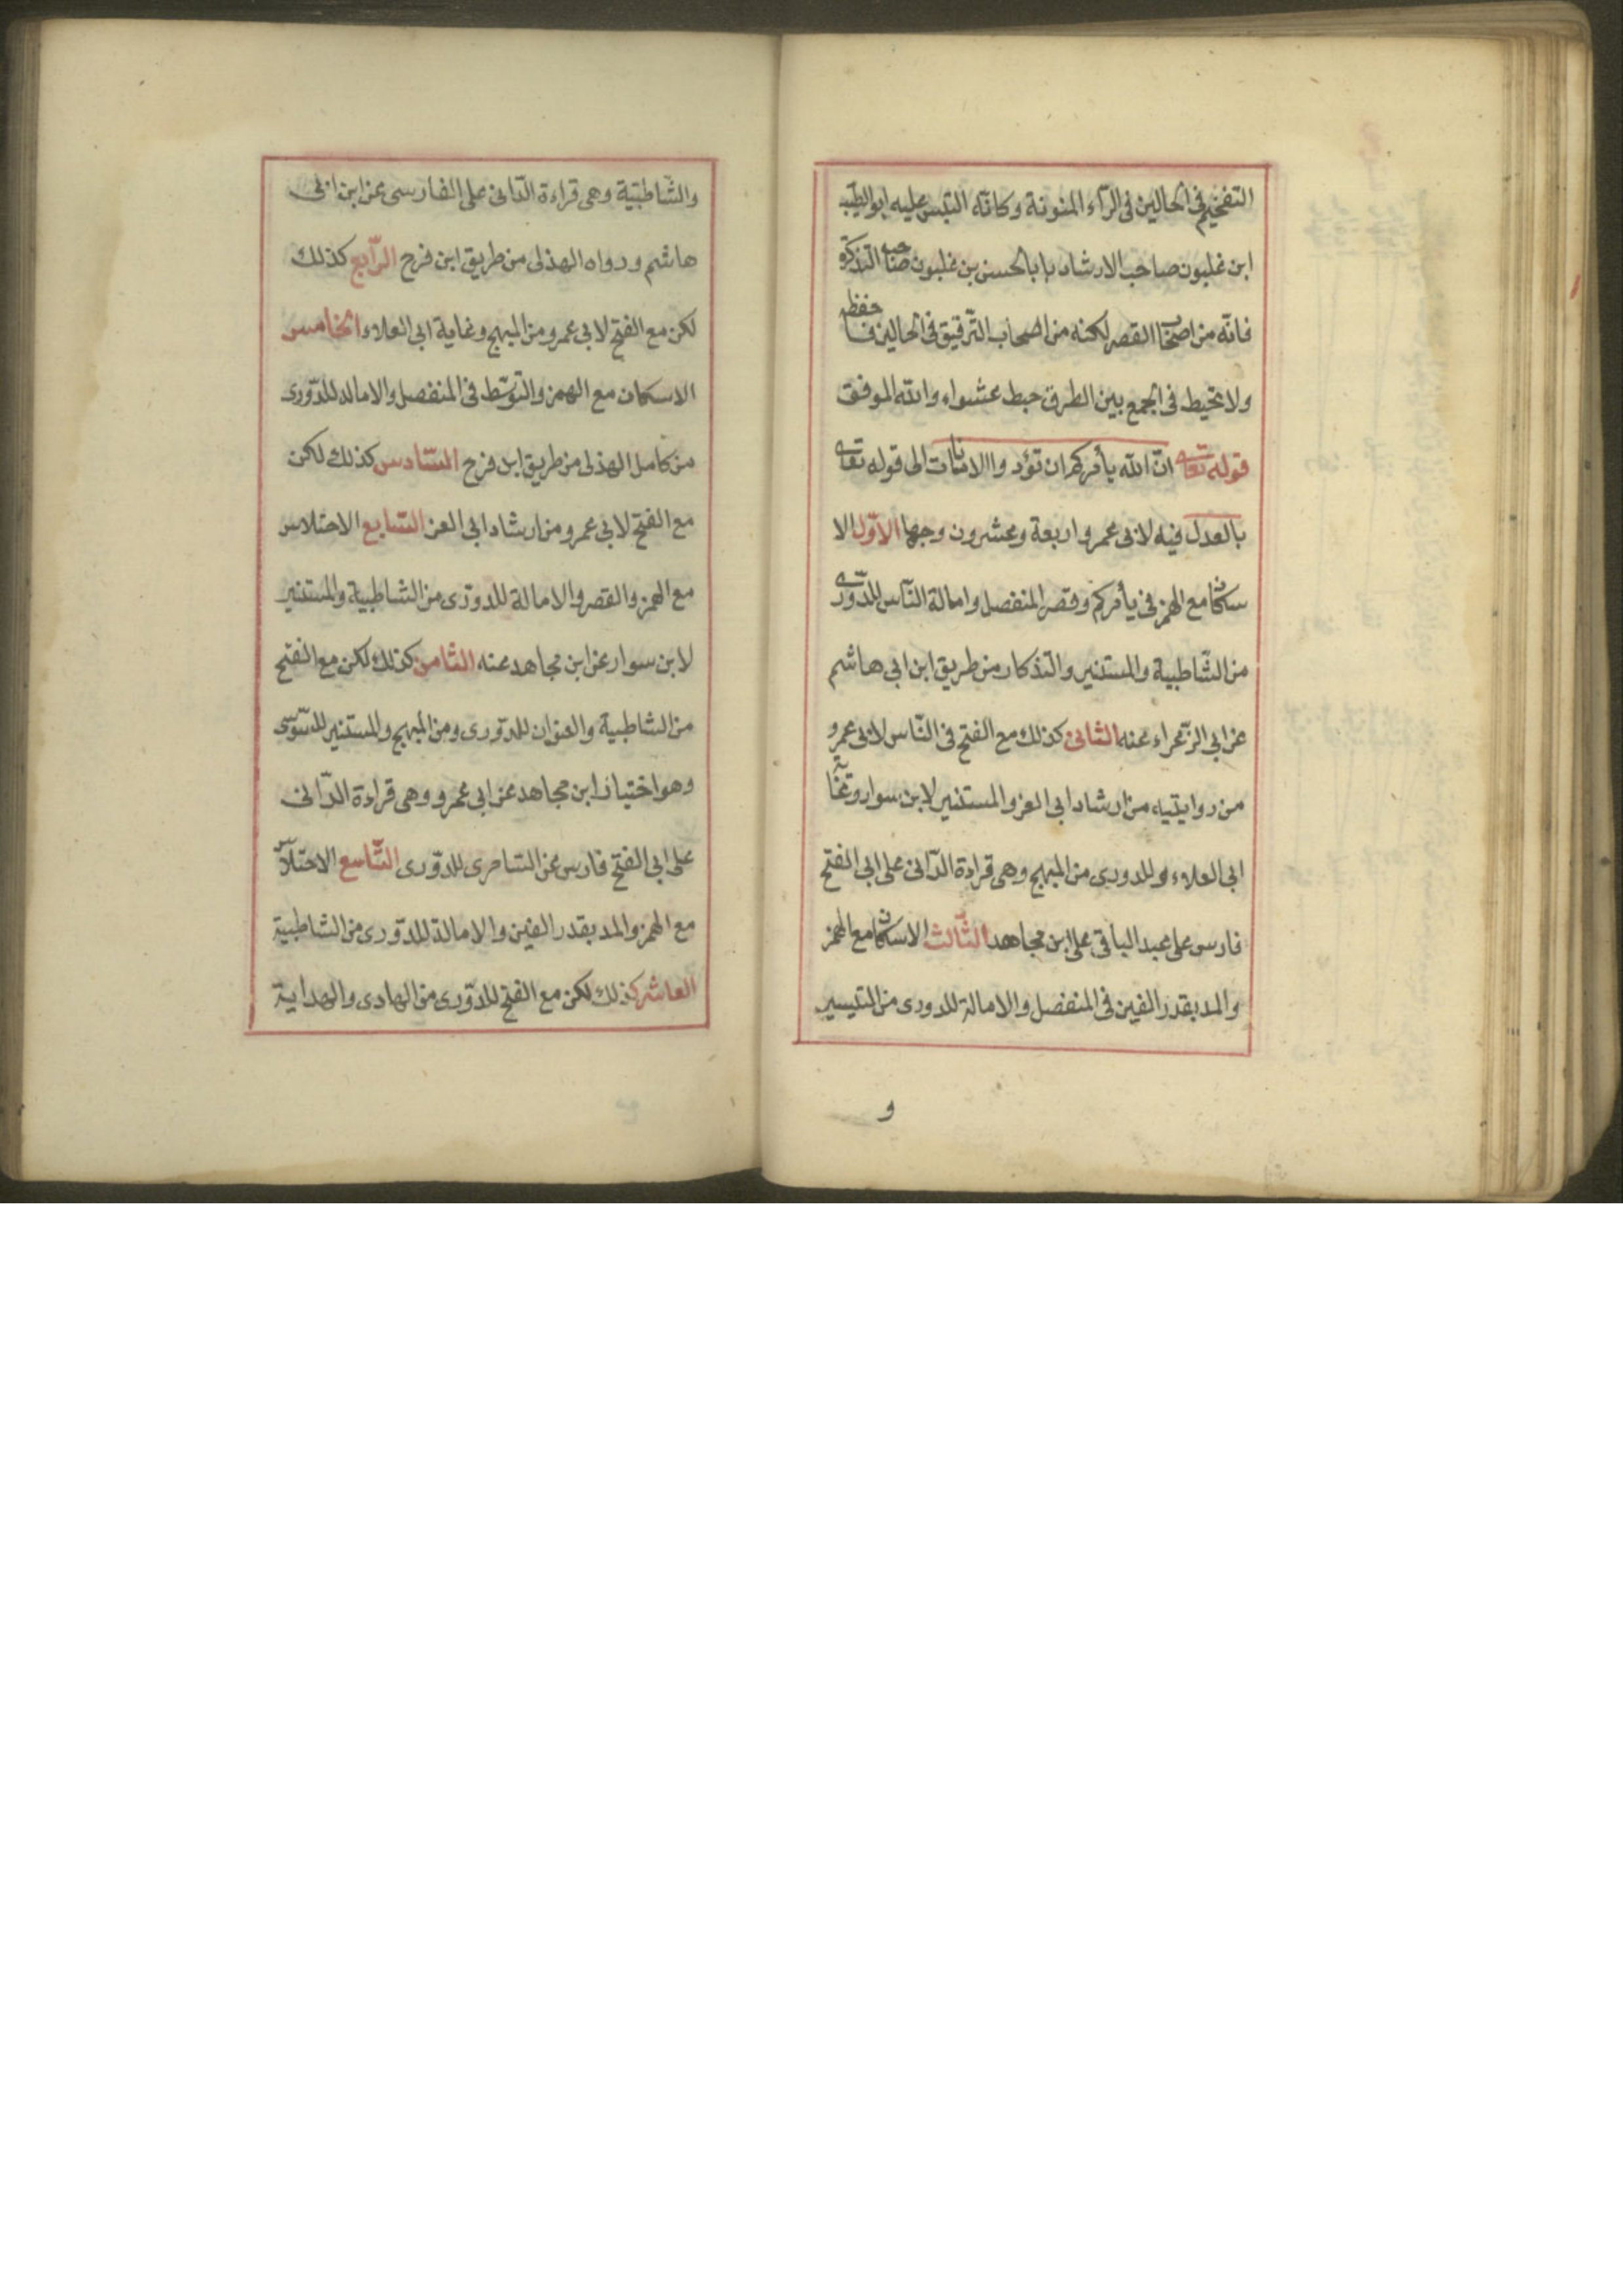 التفخيم فى الحالين فى الرآء المنونة وكانّه التبس عليه ابو الطيب
ابن غلبون صاحب الارشاد بابا الحسن بن غلبون صاحب التذكرة
فانّه من اصحاب القصر لكنه من اصحاب التّرقيق فى الحالين فاحفظه
ولا تخبط فى الجمع بين الطرق خبط عشواء والله الموفق
قوله تعالى انّ الله يأمركم ان تؤدوا الامانات الى قوله تعالى
بالعدل فيه لابى عمرو اربعة وعشرون وجها الاوّل الا
سكان مع الهمز فى يأمركم وقصر المنفصل وامالة النّاس للدّورى
من الشّاطبية والمستنير والتذكار من طريق ابن ابى هاشم
عن ابى الزّعراء عنه الثانى كذلك مع الفتح فى النّاس لابى عمرو
من روايتيه من ارشاد ابى العز والمستنير لابن سوار وغاية
ابى العلاء وللدورى من المبهج وهى قراءة الدّانى على ابى الفتح
فارس على عبد الباقى على ابن مجاهد الثّالث الاسكان مع الهمز
والمد بقدر الفين فى المنفصل والامالة للدورى من التيسير
و
والشّاطبيّة وهى قراءة الدّانى على الفارسى عن ابن ابى
هاشم ورواه الهذلى من طريق ابن فرح الرّابع كذلك
لكن مع الفتح لابى عمرو من المبهج وغاية ابى العلاء الخامس
الاسكان مع الهمز والتوسّط فى المنفصل والامالة للدّورى
من كامل الهذلى من طريق ابن فرح السّادس كذلك لكن
مع الفتح لابى عمرو من ارشاد ابى العز السّابع الاختلاس
مع الهمز والقصر والامالة للدورى من الشاطبية والمستنير
لابن سوار عن ابن مجاهد عنه الثامن كذلك لكن مع الفتح
من الشاطبية والعنوان للدورى ومن المبهج والمستنير للسّوسى
وهو اختيار ابن مجاهد عن ابى عمرو وهى قراءة الدّانى
على ابى الفتح فارس عن السّامرى للدّورى التّاسع الاختلاس
مع الهمز والمد بقدر الفين والامالة للدّورى من الشاطبية
العاشر كذلك لكن مع الفتح للدّورى من الهادى والهداية